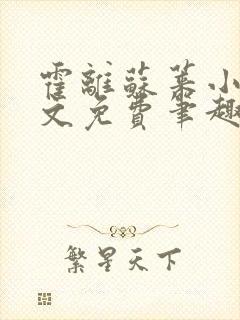 霍離蘇慕小
文免費筆趣
繁星天下